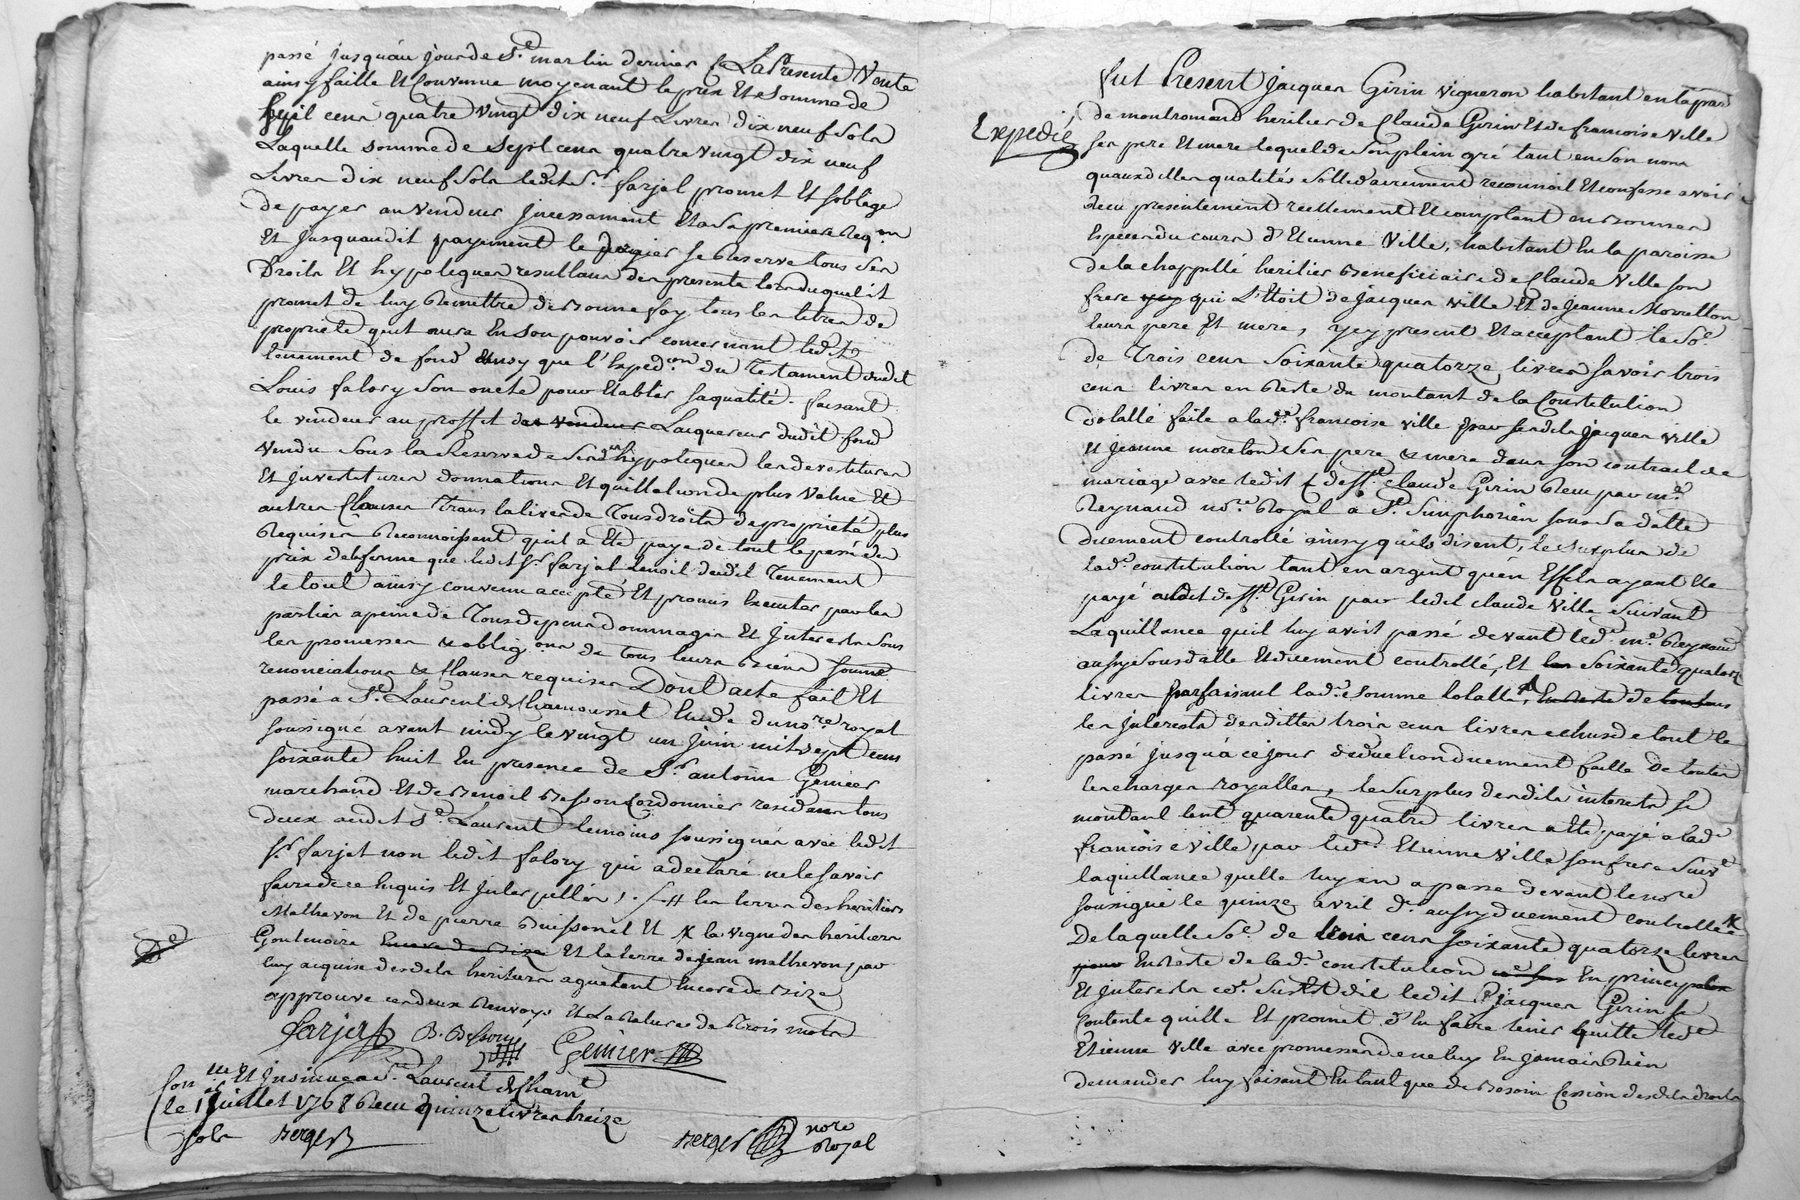 passé jusqu'au jour de St martin dernier La Presente Vente
ainsy faitte Et Convenue moyenant le prix Et Somme de
Sept cens quatre vingt dix neuf Livres dix neuf sols
Laquelle somme de Sept cens quatre vingt dix neuf
Livres dix neuf sols ledit Sr farjat promet Et soblige
de payer au vendeur jncessament Et a sa premiere Reqon
Et jusqu'audit payement le se Reserve tous ses
Droits Et hypoteques resultans des presentes lors duquel it
promet de luy Remettre de Bonne foy tous les titres de
propriete quil aura En son pouvoir concernant ledit
tenement de fond ainsy que l'Expedon du Testament dudit
Louis falory son oncle pour Etablir sa qualité. faisant
le vendeur au proffit des vendeurs Lacquereur dudit fond
vendu sous la Reserve de sesd. hypoteques les devestitures
Et jnvestitures donnations Et quittation de plus value Et
autres Clauses Translatives de Tous droits de proprieté plus
Requises Reconnoissant quil a Eté payé de tout le passé du
prix de la ferme que ledit Sr farjat tenoit dudit Tenement
le tout ainsy convenu accepté Et promis Executer par les
parties a peine de Tous depens dommages Et Interests sous
les promesses & obligons de tous leurs Biens
renonciations & Clauses requises Dont acte fait Et
passé a St Laurent de Chamousset Etude du nore royal
soussigné avant midy le vingt un juin mil sept cens
soixante huit En presence de Sr antoine Genier
marchand Et de Benoit Besson Cordonnier residans tous
deux audit St Laurent temoins soussignés avec ledit
Sr farjat non ledit falory qui a declaré ne le savoir
faire de ce Enquis Et jnterpellés, les terres des heritiers
Malhevon Et de pierre Buissonet Et X la vigne des heritiers
Goutenoire Encore de Bize Et la terre de jean malhevon, par
luy acquise desdits heritiers aquetant Encore de Bize
approuvé ces deux Renvoys Et La Rature de trois mots
farjat B. Besson Genier
Con lle Et jnsinué a St Laurent de Cham t
le 1 juillet 1768 Recu quinze livres treize
sols Berger
Berger nore
Royal
fut Present jacques Girin vigneron habitant en la par
de montromand heritier de Claude Girin Et de francoise Ville
Expedié
ses pere Et mere lequel de son plein gré tant en son nom
quauxdittes qualités sollidairement reconnoit Et confesse avoir
Recu presentement reellement Et comptant en Bonnes
Especes du cours d'Etienne Ville, habitant En la paroisse
de la chappelle heritier Beneficiaire de Claude Ville son
frere qui L'Etoit de jacques Ville Et de jeanne Morellon
leurs pere Et mere, ycy present Et acceptant la soe
de Trois cens soixante quatorze livres savoir trois
cens livres en Reste du montant de la Constitution
dotalle faite a lade francoise ville par lesdits jacques ville
Et jeanne moreton ses pere & mere dans son contrait de
mariage avec ledit deft claude Girin Recu par me
Reynaud nore Royal a St Simphorien sous sa datte
duement controllé ainsy quils disent, le surplus de
lade constitution tant en argent qu'en Effets ayant Eté
payé audit deft Girin par ledit claude Ville suivant
La quittance quil luy avoit passé devant led. me Reynaud
aussy sous datte Et duement controllé, Et les soixante quatorze
livres parfaisant lade somme totalle, En Reste de
les jnterests desdittes trois cens livres echus de tout le
passé jusqu'a ce jour deduction duement faitte de toutes
les charges royalles, le surplus desdits interets se
montant cent quarente quatre livres a Eté payé a lade
francoise Ville, par led. Etienne Ville son frere suivt
la quittance quelle luy en a passé devant le nore
soussigné le quinze avril dr aussy duement controllée X
De laquelle soe de trois cens soixante quatorze livres
pour En Reste de lade constitution En principal
Et jnterests come Sus Est dit ledit jacques Girin se
contente quitte Et promet d'En faire tenir quitte led
Etienne Ville avec promesse de ne luy En jamais Rien
demander luy faisant En tant que de Besoin Cession desdits droits